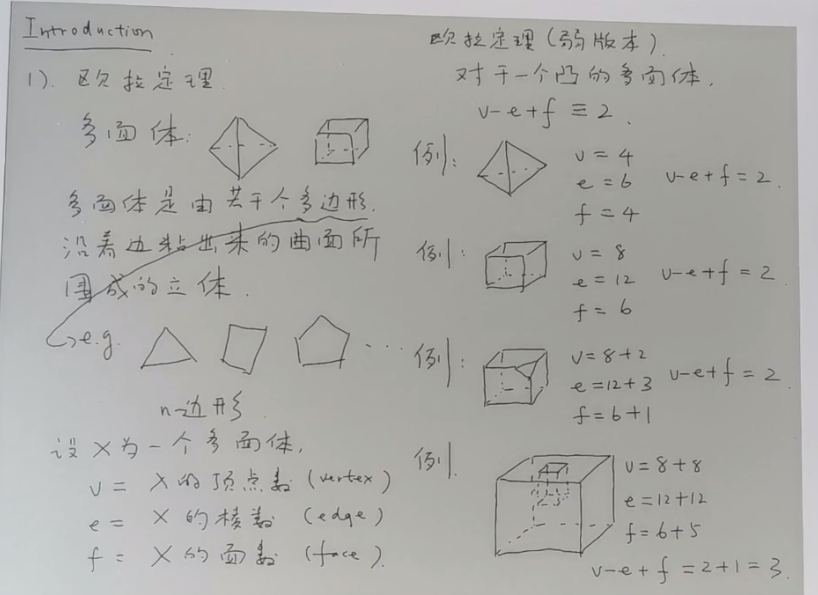 Introduction
1). 欧拉定理
多面体:
多面体是由若干个多边形
沿着边粘出来的曲面所
围成的立体.
e.g. ...
n边形
设X为一个多面体.
v = X的顶点数 (vertex)
e = X的棱数 (edge)
f = X的面数 (face).
欧拉定理(弱版本).
对于一个凸的多面体.
v-e+f ≡ 2.
例:
v = 4
e = 6
f = 4
v-e+f = 2.
例:
v = 8
e = 12
f = 6
v-e+f = 2.
例:
v = 8+2
e = 12+3
f = 6+1
v-e+f = 2.
例.
v = 8+8
e = 12+12
f = 6+5
v-e+f = 2+1 = 3.